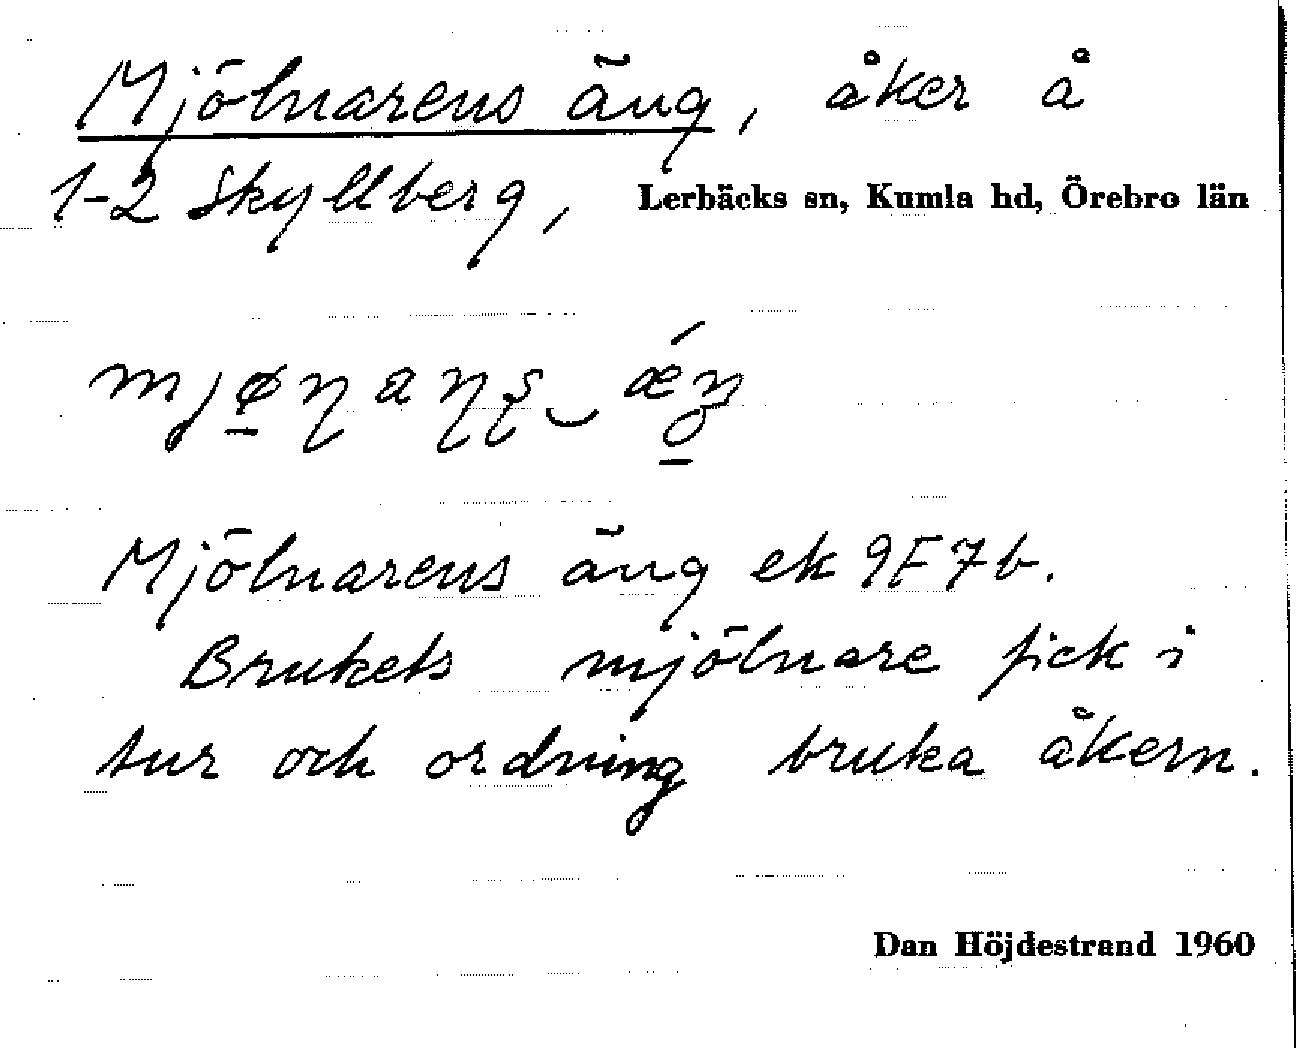 Mjölnarens äng, åker å
1-2 Skyllberg, Lerbäcks sn, Kumla hd, Örebro län
Mjölnarens äng ek 9F7b.
Brukets mjölnare fick i
tur och ordning bruka åkern.
Dan Höjdestrand 1960